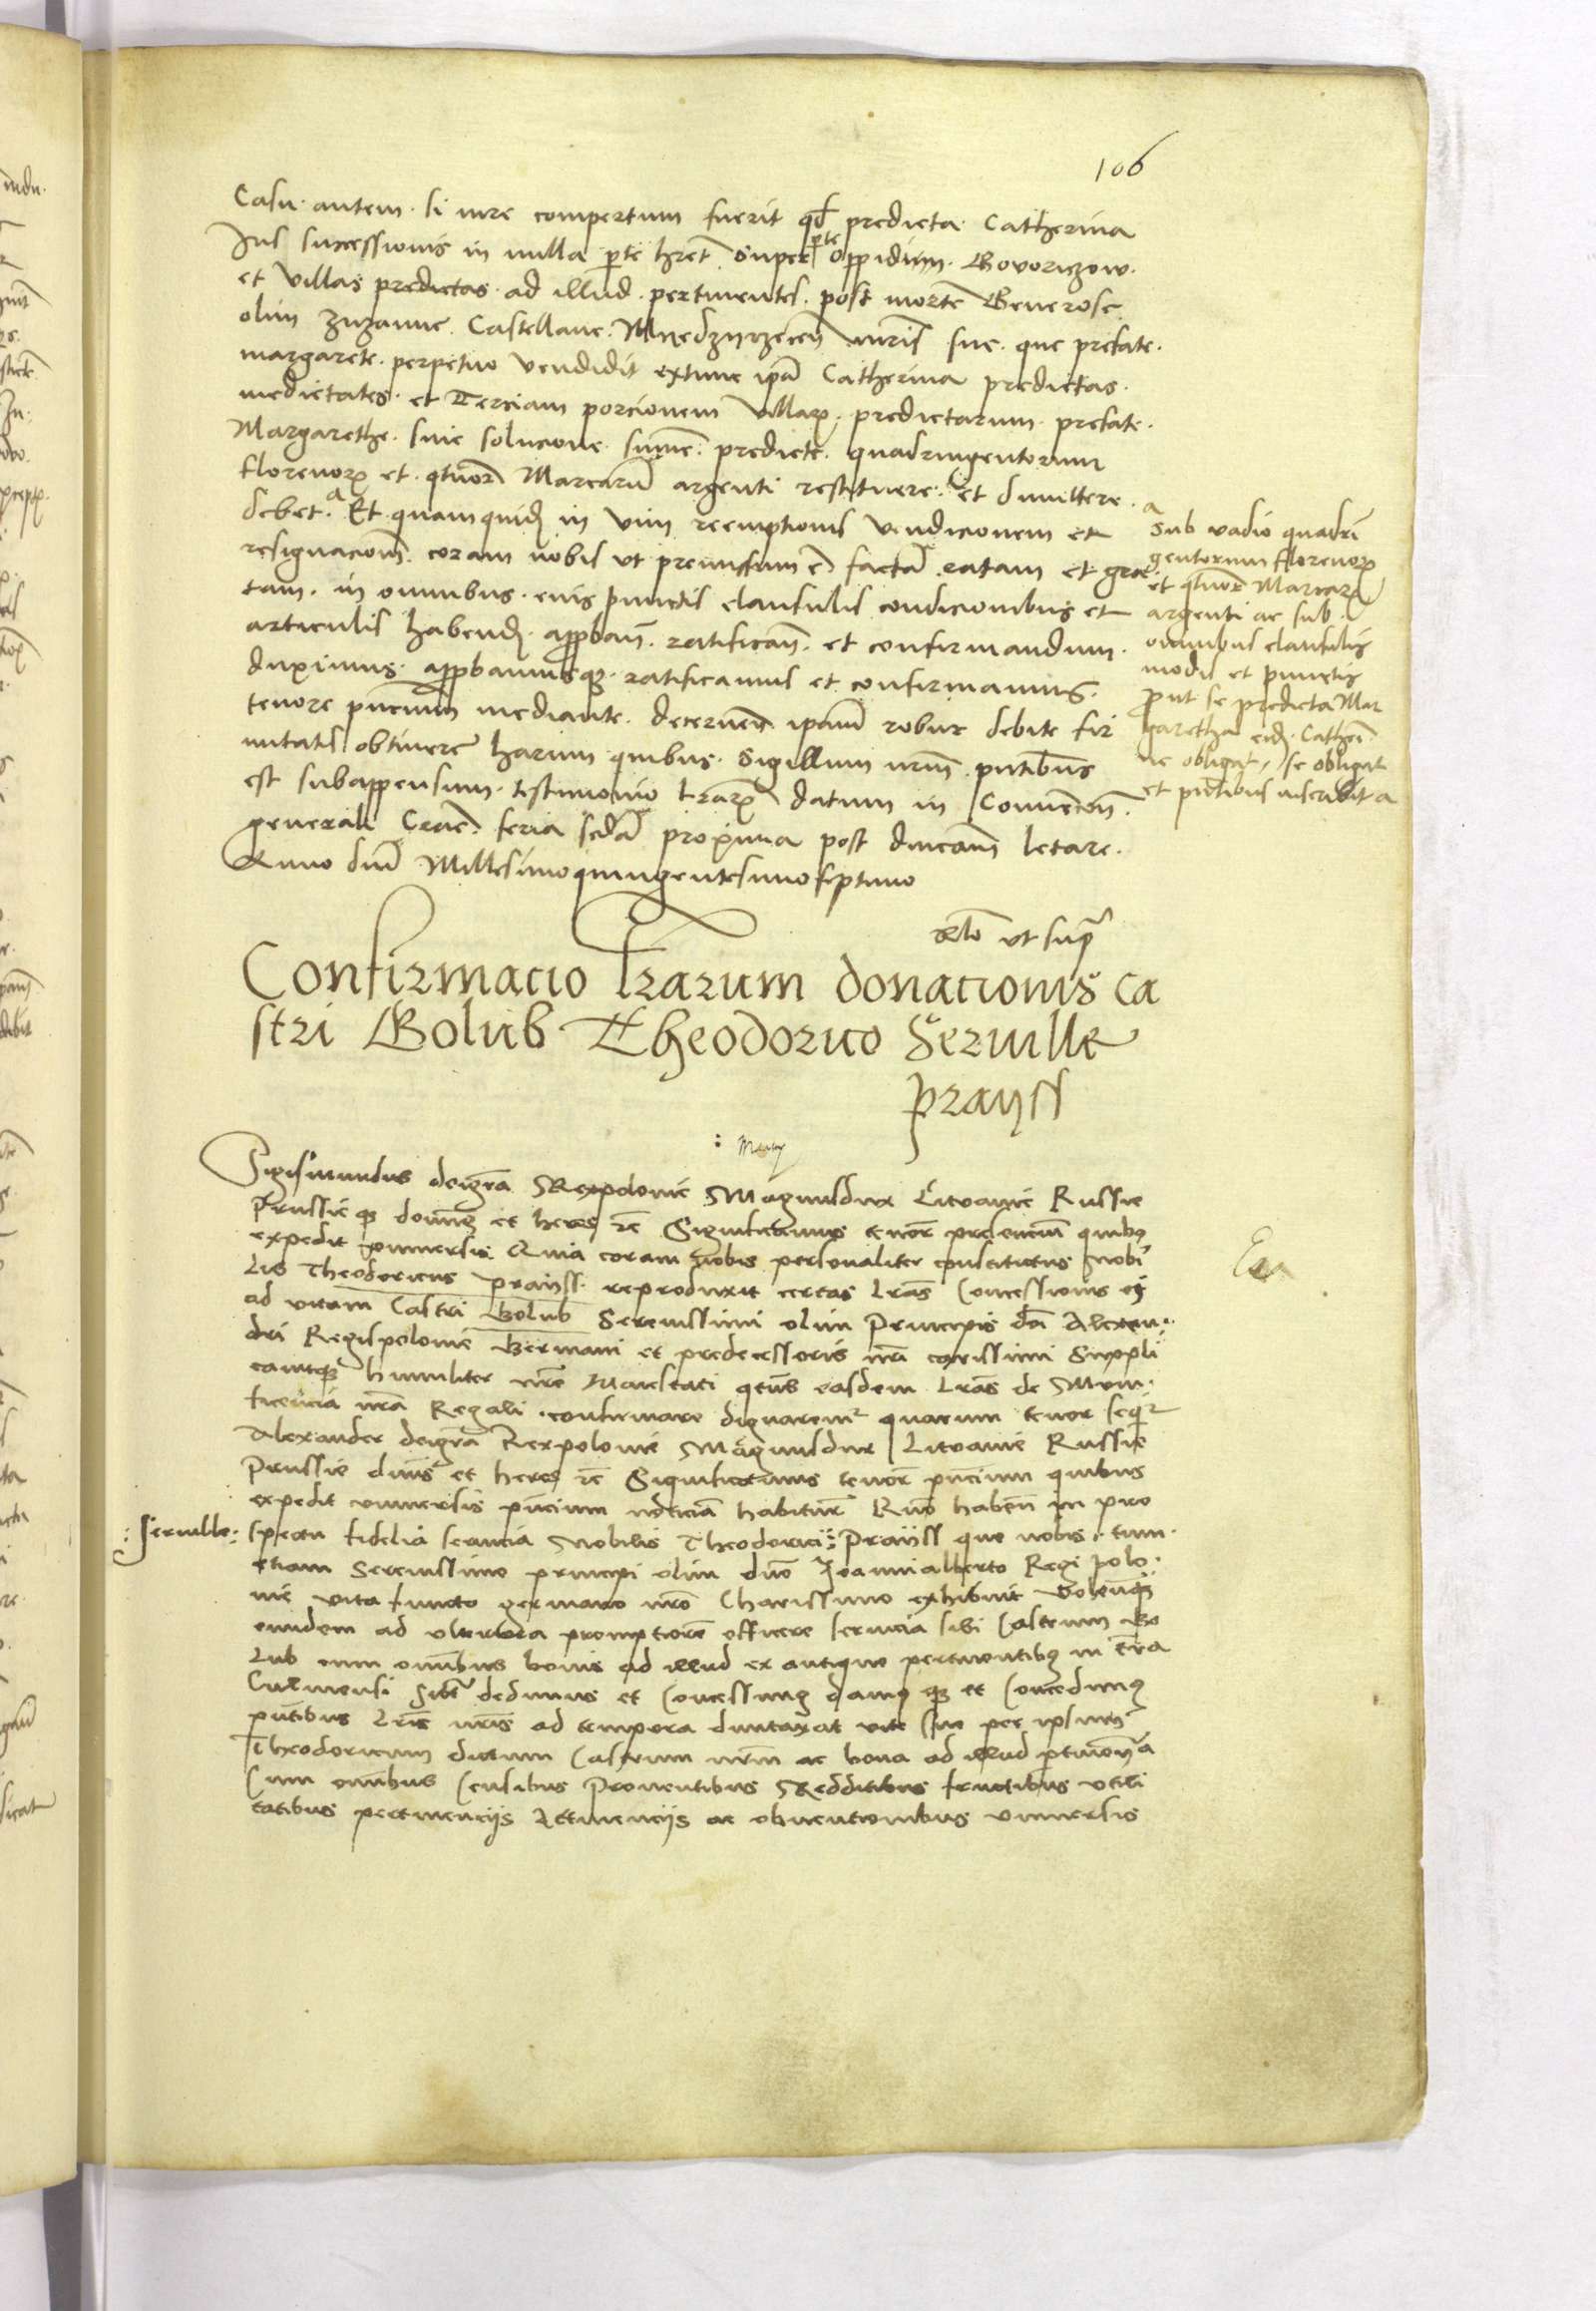 106
Casu autem si iure compertum fuerit qd predicta Catherina
Jus successionis in nulla parte hret super parte oppidum Govorczow
et villas predictas ad illud pertinentes post morte Generose
olim Zuzanne Castellane Myedzyrzecen mris sue que prefate
margarete perpetuo vendidit extunc ipa Catherina predictas
medietates et Terciam porcionem villarz predictarum prefate
Margarethe sine solucione sume predicte quadringentorum
florenorz et qtuor Marcaru argenti restituere et dimittere
debet a Et quamquid in vim reempcionis vendicionem et
resignacoem coram nobis ut premissum e facta ratam et gra
tam in omnibus eius punctis clausulis condicionibus et
articulis habend approban ratifican et confirmandum
duximus approbamusqz ratificamus et confirmamus
tenore pncium mediante decernen ipam robur debite fir
mitatis obtinere harum quibus Sigillum nrm pntibus
est subappensum testimonio lrarz datum in Convencoe
generali Crac feria scda proxima post dnicam letare
Anno dni Millesimoquingentesimoseptimo
a Sub vadio quadri
gentorum florenorz
et qtuor Marcarz
argenti ac sub
omnibus clausulis
modis et punctis
prout se predicta Mar
garetha eid Cathe
ne obligat se obligat
et pntibus inscribit a
Relo ut supra
Confirmacio lrarum donacionis ca
stri Golub Theodorico Serville
Pranss
Sigismundus dei gra Rex polonie Magnusdux Litvanie Russie
Prussieqz domnus et heres rc Significamus tenor presencium quibus
expedit vniversis Quia coram nobis personaliter constitutus nobi
lis Theodoricus Pranss reproduxit certas lras Concessionis ei
ad vitam Castri Golub Serenissimi olim Principis dni Alexan
dri Regispolonie Germani et predecessoris nri carissimi Suppli
cauitqz humiliter nre Maiestati qtus easdem lras de Muni
ficencia nra Regali confirmare dignaremr quarum tenor sequir
Alexander dei gra Rexpolonie Magnusdux Litvanie Russie
Prussie dnus et heres rc Significamus tenor pncium quibus
expedit vniversis pncium noticia habitur Quo haben in pro
: serville : spectu fidelia servicia Nobilis Theodorici Pranss que nobis tum
etiam Serenissimo principi olim dno Joannialberto Regi polo
nie vita functo germano nro Charissimo exhibuit volenqz
eundem ad ulteriora promptiore officere servicia sibi Castrum Go
lub cum omnibus bonis ad illud ex antiquo pertinentibus in tra
Culmensi dedimus et Concessimus damusqz et Concedimus
pntibus lris nris ad tempora duntaxat vite sue per ipsum
Theodoricum dictum Castrum nrm ac bona ad illud pertinencia
Cum omnibus Censibus Proventibus Redditibus fructibus utili
tatibus pertinenciis Attinenciis ac obvencionibus vniversis